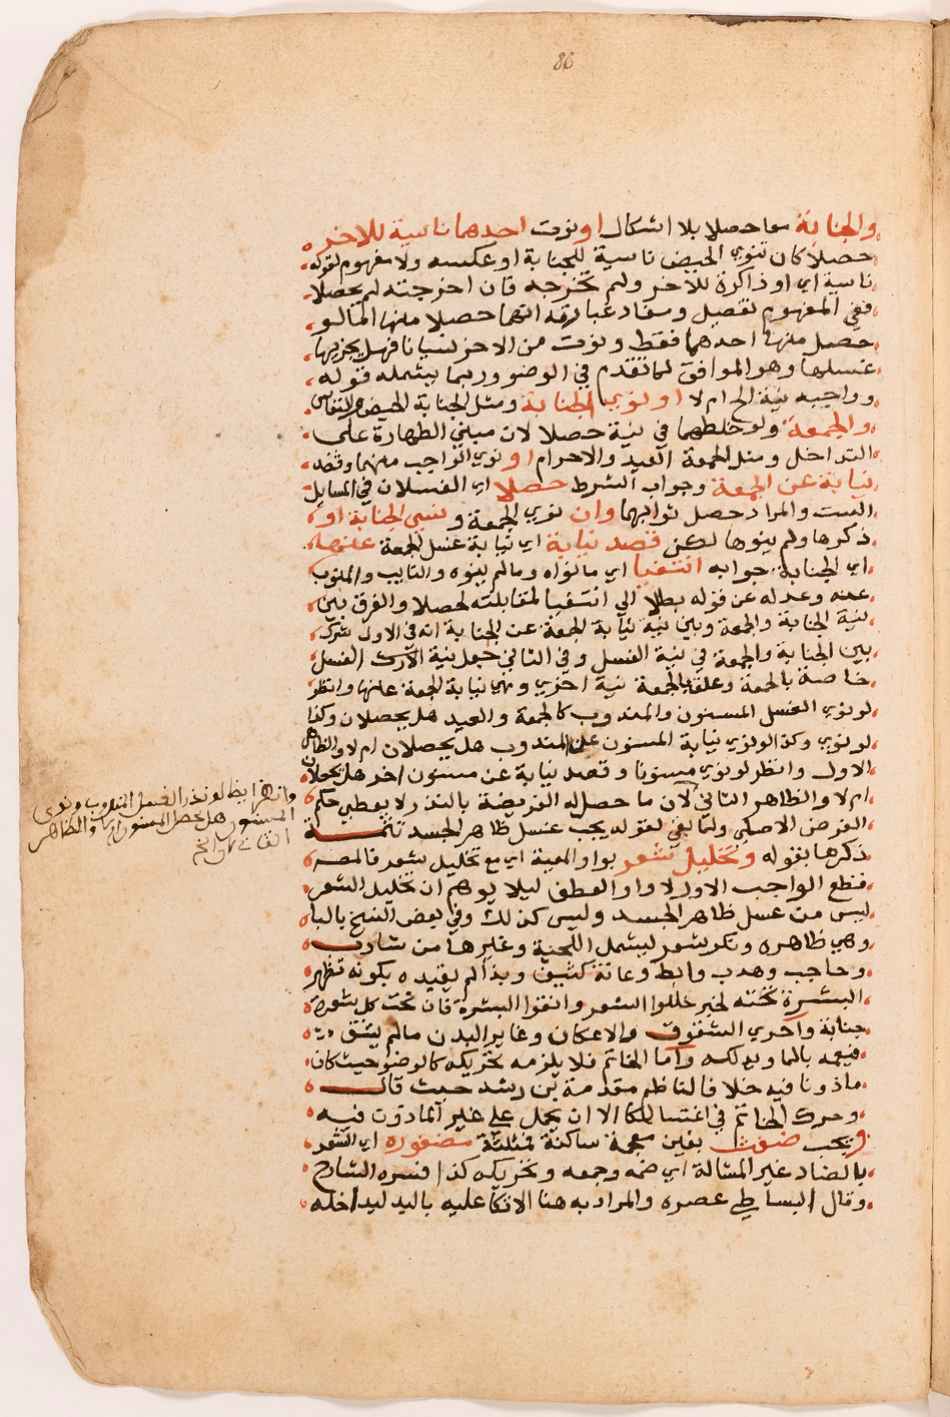 86
والجنابة معا حصلا بلا اشكال او نوت احدهما ناسية للاخر
حصلا كان تنوي الحيض ناسية للجنابة او عكسه ولا مفهوم لقوله
ناسية اي او ذاكرة للآخر ولم تخرجه فان اخرجته لم يحصلا
ففي المفهوم تفصيل ومفاد عبارته انهما حصلا منها اما لو
حصل منها احدهما فقط ونوت من الاخر نسيانا فهل يجزيها
غسلها وهو الموافق لما تقدم في الوضو وربما يشمله قوله
وواجبه نية الخ ام لا او نوي الجنابة ومثل الجنابة الحيض والنفاس
والجمعة ولو خلطهما في نية حصلا لان مبني الطهارة على
التداخل ومثل الجمعة العيد والاحرام او نوي الواجب منهما وقصد
نيابة عن الجمعة وجواب الشرط حصلا اي الغسلان في المسايل
الست والمراد حصل ثوابهما وان نوي الجمعة ونسي الجنابة او
ذكرها ولم ينوها لكن قصد نيابة اي نيابة غسل الجمعة عنها
اي الجنابة جوابه انتفيا اي ما نواه وما لم ينوه والنايب والمنوب
عنه وعدله عن قوله بطلا الي انتفيا لمقابلته لحصلا والفرق بين
نية الجنابة والجمعة وبين نية نيابة الجمعة عن الجنابة انه في الاول شرك
بين الجنابة والجمعة في نية الغسل وفي الثاني جعل نية الغسل
خاصة بالجمعة وعلق بالجمعة نية اخري وهي نيابة الجمعة عنها وانظر
لو نوي الغسل المسنون والمندوب كالجمعة والعيد هل يحصلان وكذا
لو نوي وكذا لو نوي نيابة المسنون عن المندوب هل يحصلان ام لا والظاهر
الاول وانظر لو نوي مسنونا وقصد نيابة عن مسنون اخر هل يحصلان
ام لا والظاهر الثاني لان ما حصل له الفريضة بالنذر لا يعطي حكم
الفرض الاصلي ولما بقي لقوله يجب غسل ظاهر الجسد تتمة
ذكرها بقوله وتخليل شعر بواو المعية اي مع تخليل شعر فالمصه
قطع الواجب الاول لا واو العطف ليلا يوهم ان تخليل الشعر
ليس من غسل ظاهر الجسد وليس كذلك وفي بعض النسخ بالبا
وهي ظاهره ونكر شعر ليشمل اللحية وغيرها من شارب
وحاجب وهدب وابط وعانة كثيف وبدا لم يقيده بكونه تظهر
البشرة تحته لخبر خللوا الشعر وانقوا البشرة فان تحت كل شعرة
جنابة وآحري الشقوق والاعكان وغاير البدن مالم يشق
فيعمه بالما ويدلكه وآما الخاتم فلا يلزمه تحريكه كالوضو حيث كان
ماذونا فيه خلا فا لناظم مقدمة بن رشد حيث قال
وحرك الخاتم في اغتسالكا الا ان يحمل علي غير المأذون فيه
ويجب ضغث بغين معجمة ساكنة فمثلثة مضفوره اي الشعر
بالضاد غير المشالة اي ضمه وجمعه وتحريكه كذا فسره الشارح
وقال البساطي عصره والمراد به هنا الاتكا عليه باليد ليداخله
وانظر ايضا لو نذر الغسل المندوب ونوى
المسنون هل يحصل المسنون ام لا والظاهر